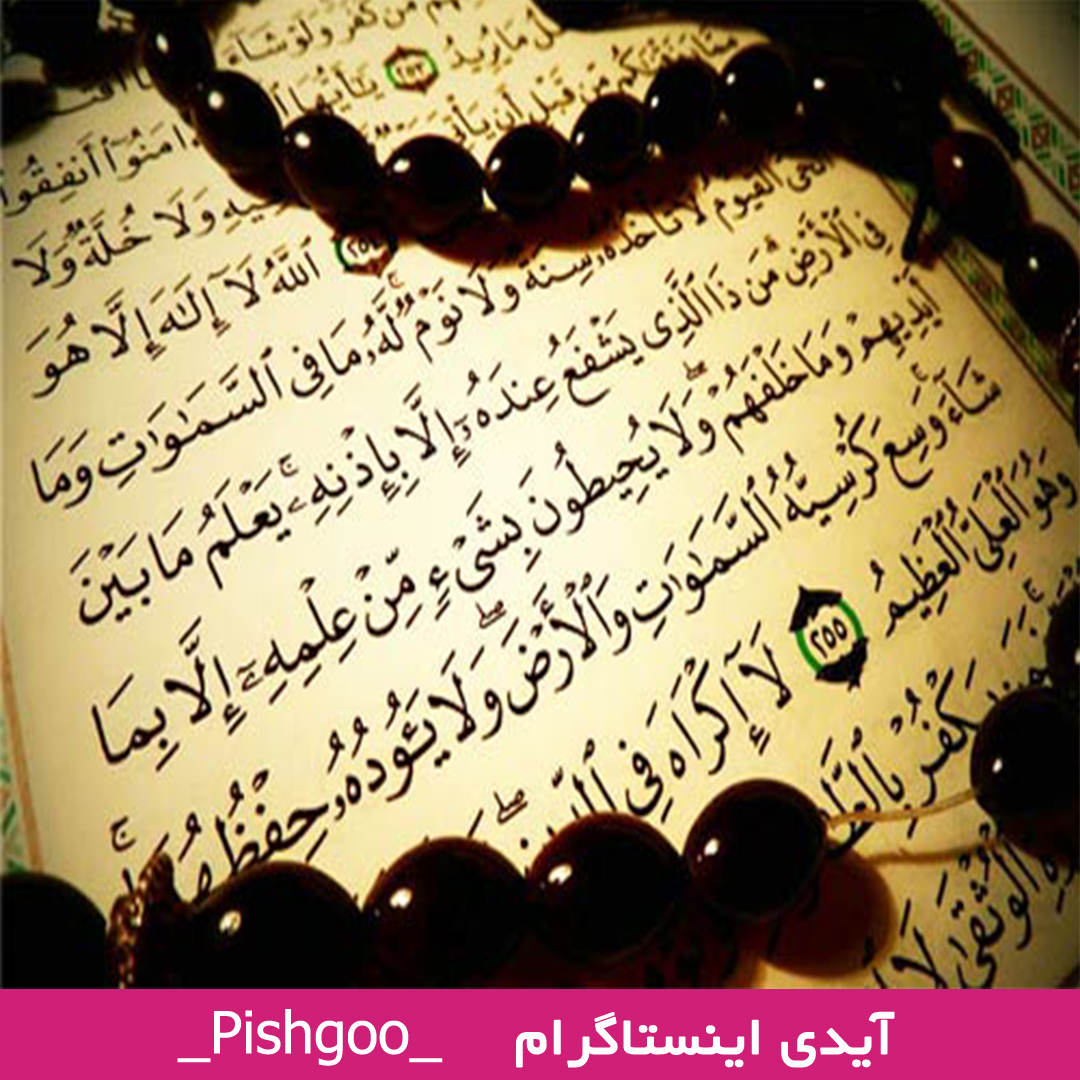 مَن كَفَرَ وَلَوْ شَآءَ
مَا يُرِيدُ ٢٥٣ يَٰٓأَيُّهَا
ءَامَنُوٓا۟ أَنفِقُوا۟ مِن قَبْلِ أَن يَأْتِىَ
فِيهِ وَلَا خُلَّةٌ وَلَا
ٱللَّهُ لَآ إِلَٰهَ إِلَّا هُوَ
ٱلْحَىُّ ٱلْقَيُّومُ لَا تَأْخُذُهُۥ سِنَةٌ وَلَا نَوْمٌ لَّهُۥ مَا فِى ٱلسَّمَٰوَٰتِ وَمَا
فِى ٱلْأَرْضِ مَن ذَا ٱلَّذِى يَشْفَعُ عِندَهُۥٓ إِلَّا بِإِذْنِهِۦ ۚ يَعْلَمُ مَا بَيْنَ
أَيْدِيهِمْ وَمَا خَلْفَهُمْ ۖ وَلَا يُحِيطُونَ بِشَىْءٍ مِّنْ عِلْمِهِۦٓ إِلَّا بِمَا
شَآءَ ۚ وَسِعَ كُرْسِيُّهُ ٱلسَّمَٰوَٰتِ وَٱلْأَرْضَ ۖ وَلَا يَـُٔودُهُۥ حِفْظُهُمَا ۚ
وَهُوَ ٱلْعَلِىُّ ٱلْعَظِيمُ ٢٥٥ لَآ إِكْرَاهَ فِى ٱلدِّينِ ۖ
يَكْفُرْ
ٱلْوُثْقَىٰ لَا
آیدی اینستاگرام _Pishgoo_